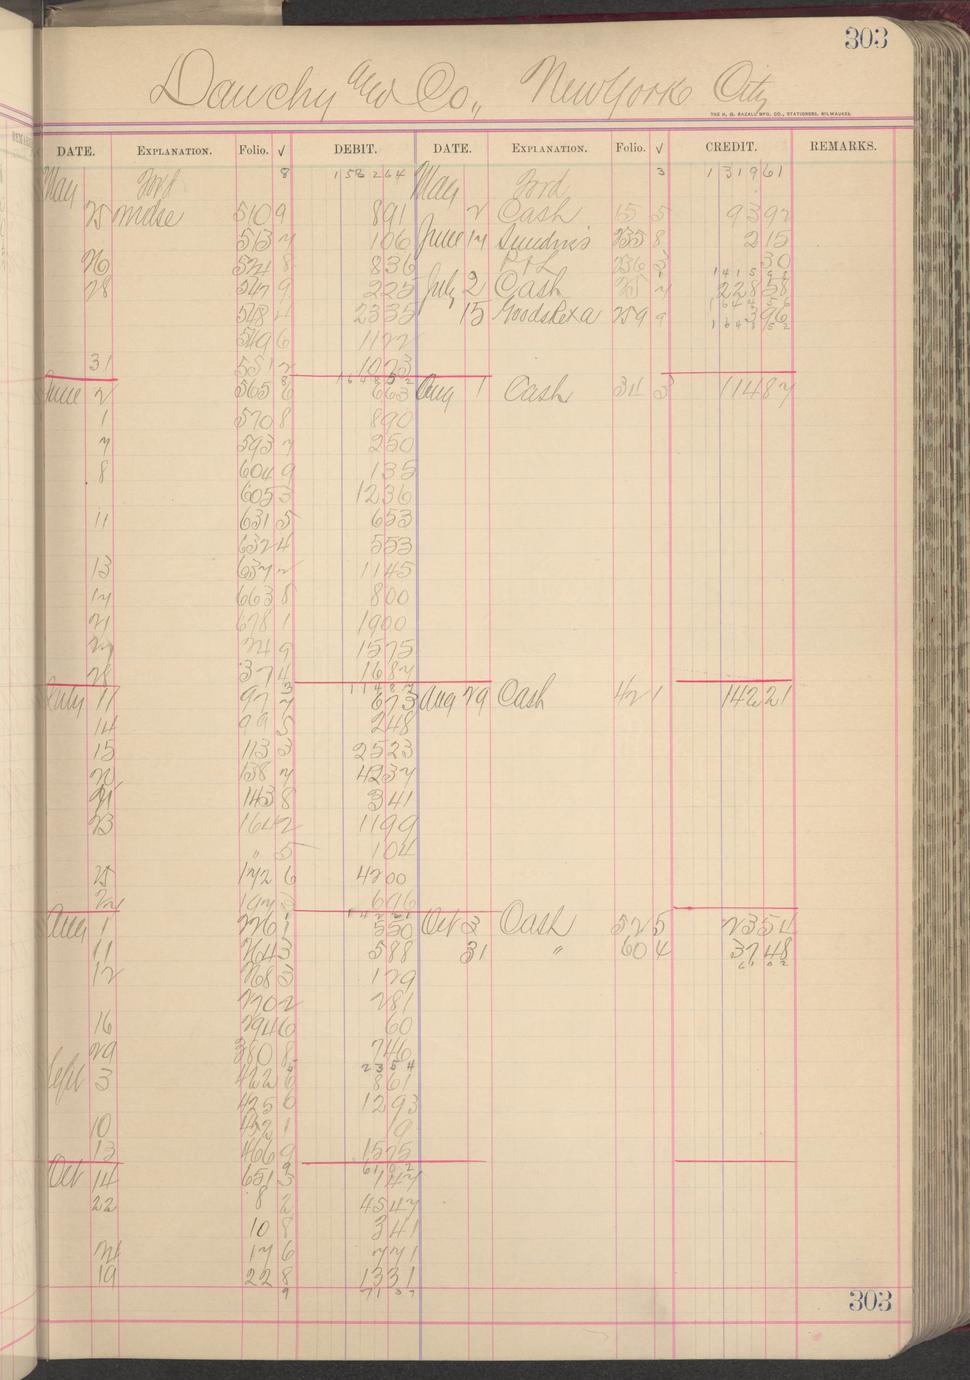 303
Dauchy and Co., New York City
THE H. G. RAZALL MFG. CO., STATIONERS, MILWAUKEE.
DATE. EXPLANATION. Folio. √ DEBIT. DATE. EXPLANATION. Folio. √ CREDIT. REMARKS.
May Ford 8 158264 May Ford 3 131961
25 Mdse 510 9 891 2 Cash 15 5 9392
513 7 106 June 17 Sundries 235 8 215
26 524 8 836 P+L 236 30
28 547 9 225 July 2 Cash 7 22858
548 4 2335 15 Goods Rexa 259 9 396
549 6 1122 164852
31 551 2 1023
164852
June 2 565 6 663 Aug 1 Cash 34 3 11487
1 570 8 890
7 593 7 250
8 604 9 135
605 3 1236
11 631 5 653
632 4 553
13 637 2 1145
17 663 8 800
21 678 1 1900
27 24 9 1575
28 37 4 1687
11487
July 11 97 7 673 Aug 29 Cash 42 1 14221
14 99 5 248
15 113 3 2523
138 7 4237
21 143 8 341
23 164 2 1199
" 5 104
25 172 6 4200
696
14221
Aug 1 226 1 550 Oct 3 Cash 52 5 2354
11 264 3 588 31 " 60 4 3748
12 268 3 129 6102
270 2 281
16 294 6 60
29 380 8 746
2354
Sept 3 422 6 861
425 6 1293
10 452 1 19
13 466 9 1575
6102
Oct 14 651 3 147
22 8 2 4547
10 8 341
24 17 6 771
19 22 8 1331
9 7137
303